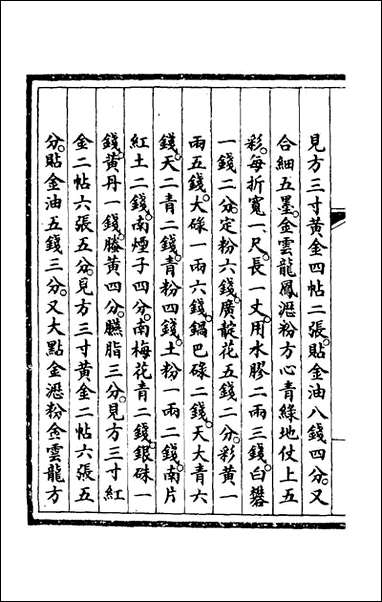 見方三寸黃金四帖二張。貼金油八錢四分。又
合細五墨。金雲龍鳳瀝粉方心青綠地仗上五
彩。每折寬一尺。長一丈。用水膠二兩三錢。白礬
一錢二分。定粉六錢。廣靛花五錢二分。彩黃一
兩五錢。大碌一兩六錢。鍋巴碌二錢。天大青六
錢。天二青二錢。青粉四錢。土粉一兩二錢。南片
紅土二錢。南煙子四分。南梅花青二錢。銀硃一
錢。黃丹一錢。藤黃四分。臙脂三分。見方三寸紅
金二帖六張五分。見方三寸黃金二帖六張五
分。貼金油五錢三分。又大點金瀝粉金雲龍方